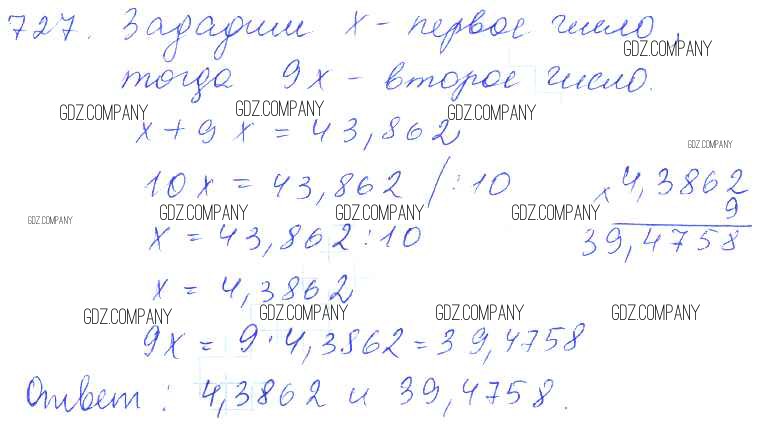 727. Зададим x - первое число,
GDZ.COMPANY
тогда 9x - второе число.
GDZ.COMPANY GDZ.COMPANY GDZ.COMPANY
x + 9x = 43,862
GDZ.COMPANY
10x = 43,862 /:10
× 4,3862
9
39,4758
GDZ.COMPANY GDZ.COMPANY GDZ.COMPANY GDZ.COMPANY
x = 43,862 : 10
x = 4,3862
GDZ.COMPANY GDZ.COMPANY GDZ.COMPANY GDZ.COMPANY
9x = 9 · 4,3862 = 39,4758
Ответ: 4,3862 и 39,4758.